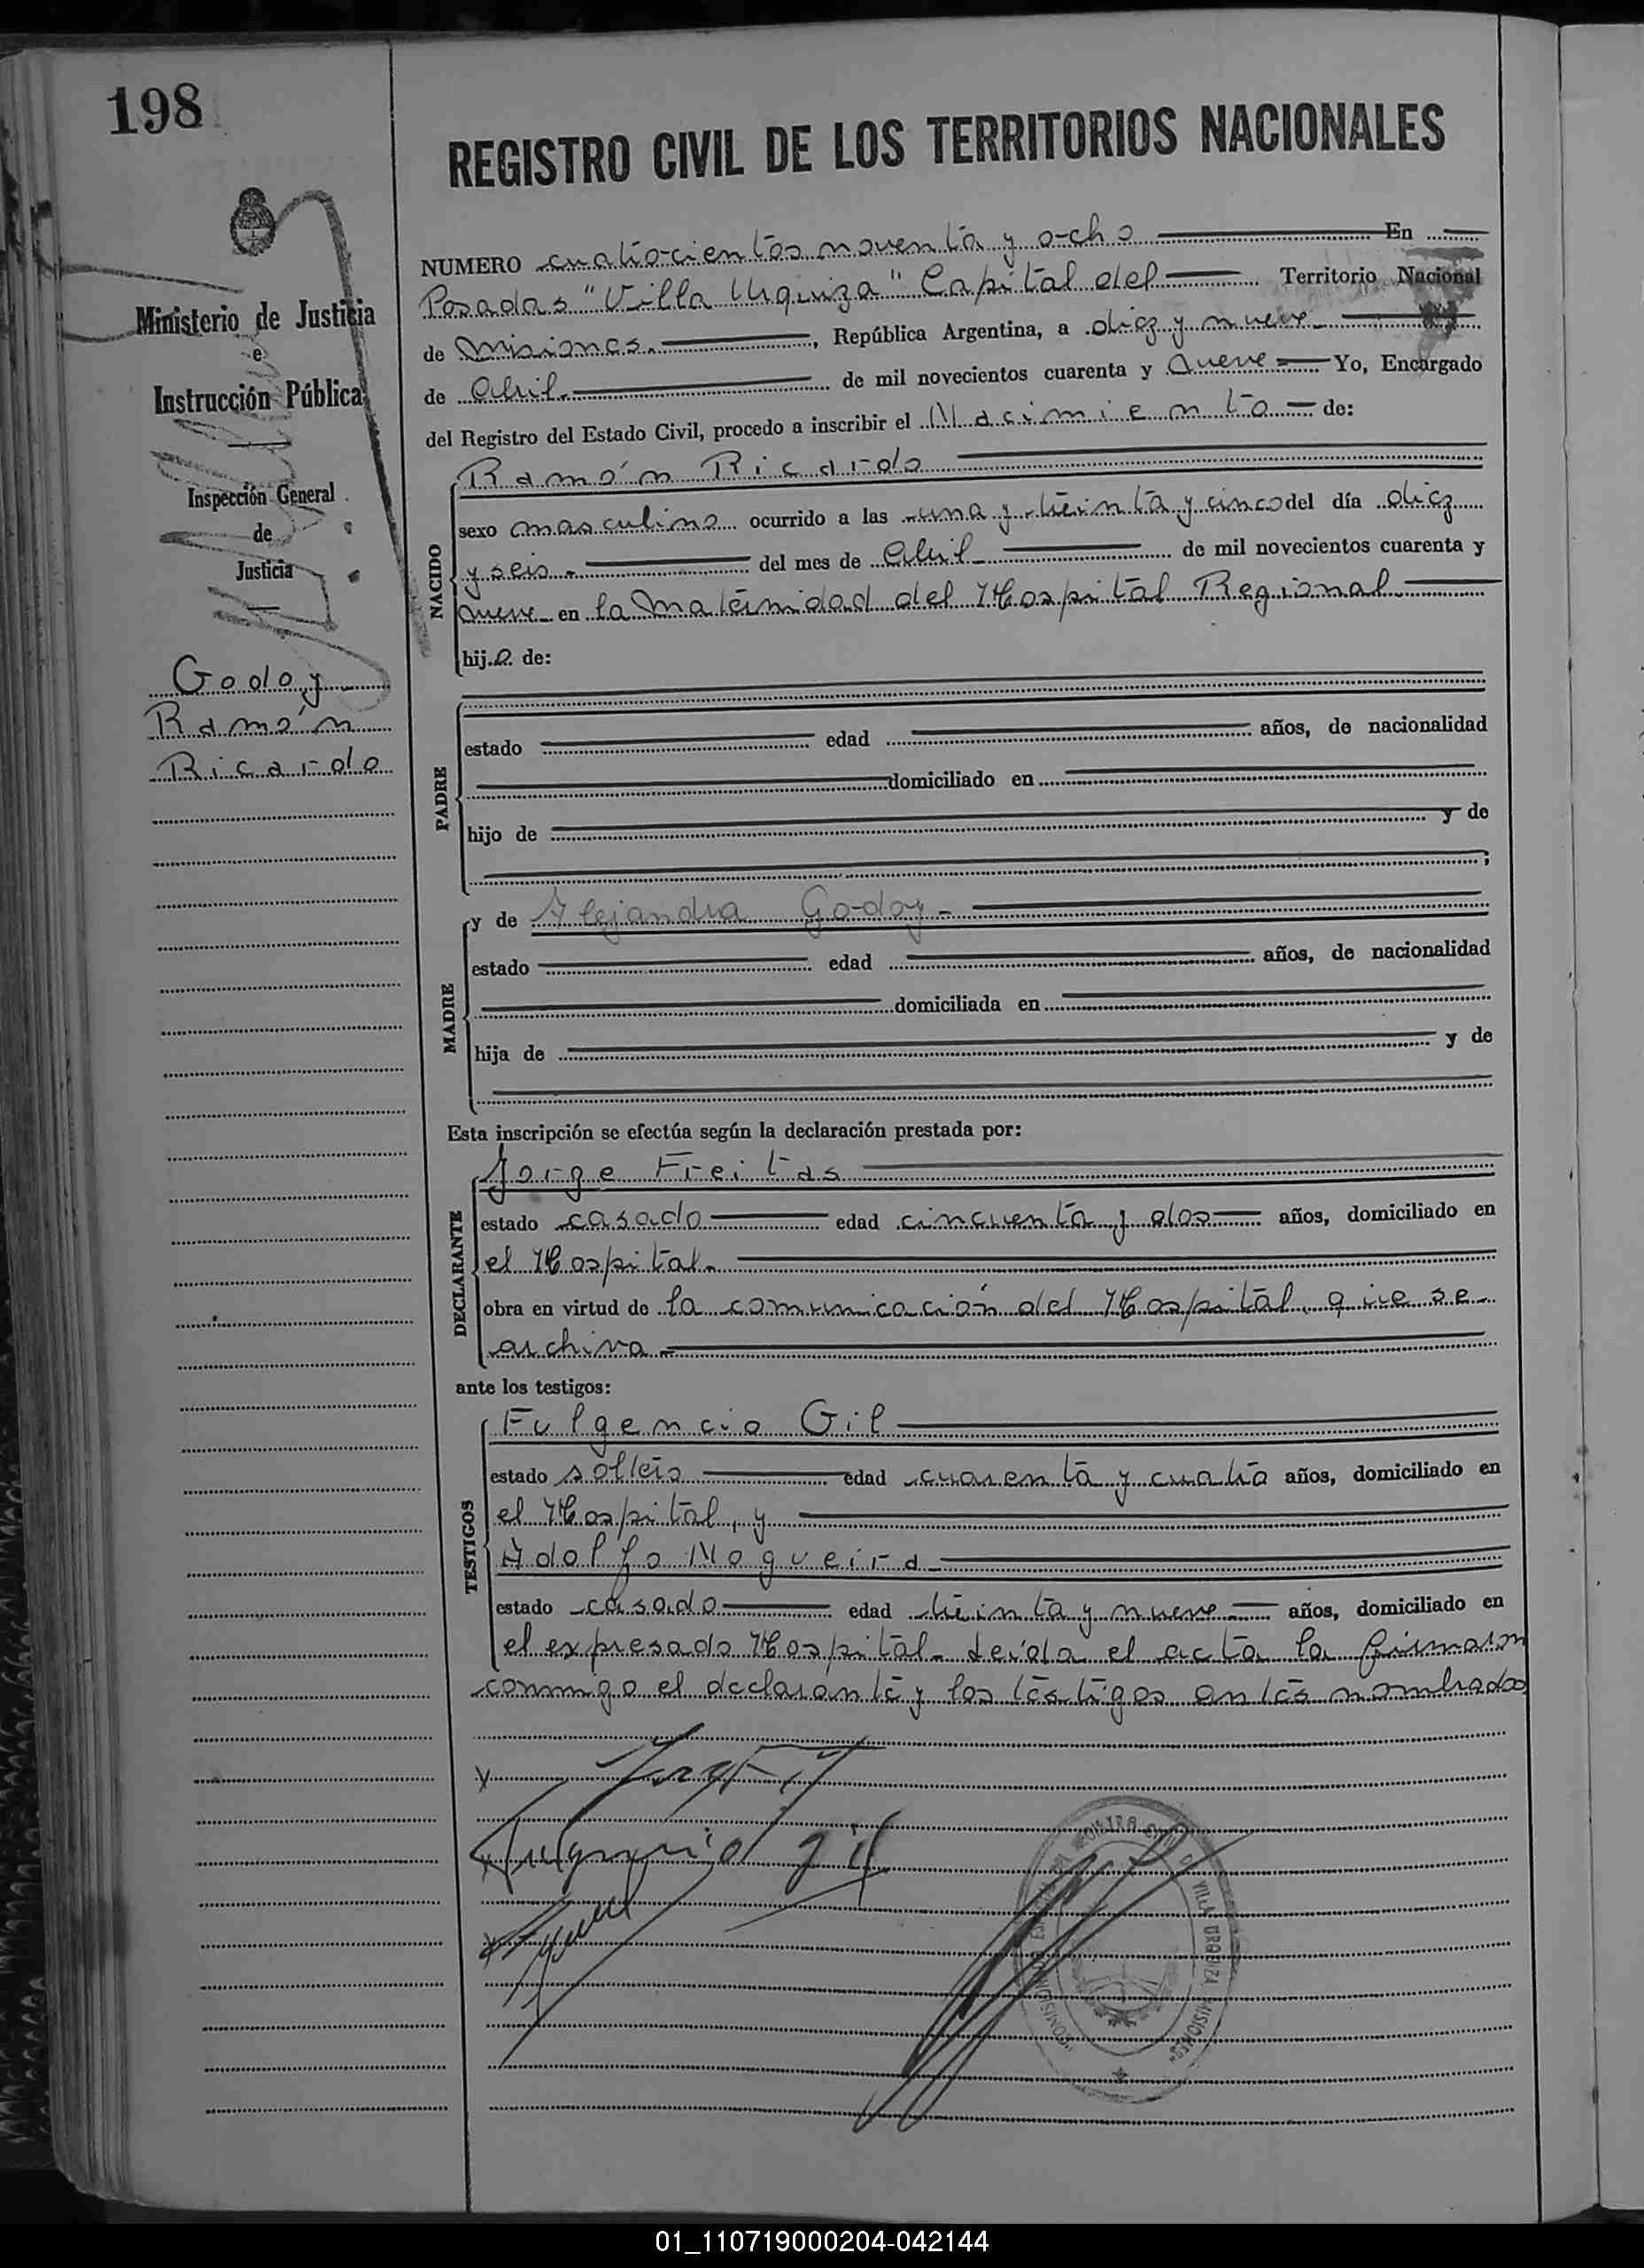 198
REGISTRO CIVIL DE LOS TERRITORIOS NACIONALES
Ministerio de Justicia
e
Instrucción Pública
Inspección General
de
Justicia
Godoy
Ramón
Ricardo
NUMERO cuatrocientos noventa y ocho En
Posadas "Villa Urquiza" Capital del Territorio Nacional
de Misiones. , República Argentina, a diez y nueve
de Abril. de mil novecientos cuarenta y nueve Yo, Encargado
del Registro del Estado Civil, procedo a inscribir el Nacimiento de:
NACIDO
Ramón Ricardo
sexo masculino ocurrido a las una y treinta y cinco del día diez
y seis - del mes de Abril de mil novecientos cuarenta y
nueve en la Maternidad del Hospital Regional
hijo de:
PADRE
estado edad años, de nacionalidad
domiciliado en
hijo de y de
;
MADRE
y de Alejandra Godoy -
estado edad años, de nacionalidad
domiciliada en
hija de y de
Esta inscripción se efectúa según la declaración prestada por:
DECLARANTE
Jorge Freitas
estado casado edad cincuenta y dos años, domiciliado en
el Hospital.
obra en virtud de la comunicación del Hospital, que se
archiva -
ante los testigos:
TESTIGOS
Fulgencio Gil
estado soltero edad cuarenta y cuatro años, domiciliado en
el Hospital, y
Adolfo Nogueira
estado casado edad treinta y nueve años, domiciliado en
el expresado Hospital. Leída el acta la firmaron
conmigo el declarante y los testigos antes nombrados
Fulgencio gil
VILLA URQUIZA "MISIONES"
01_110719000204-042144